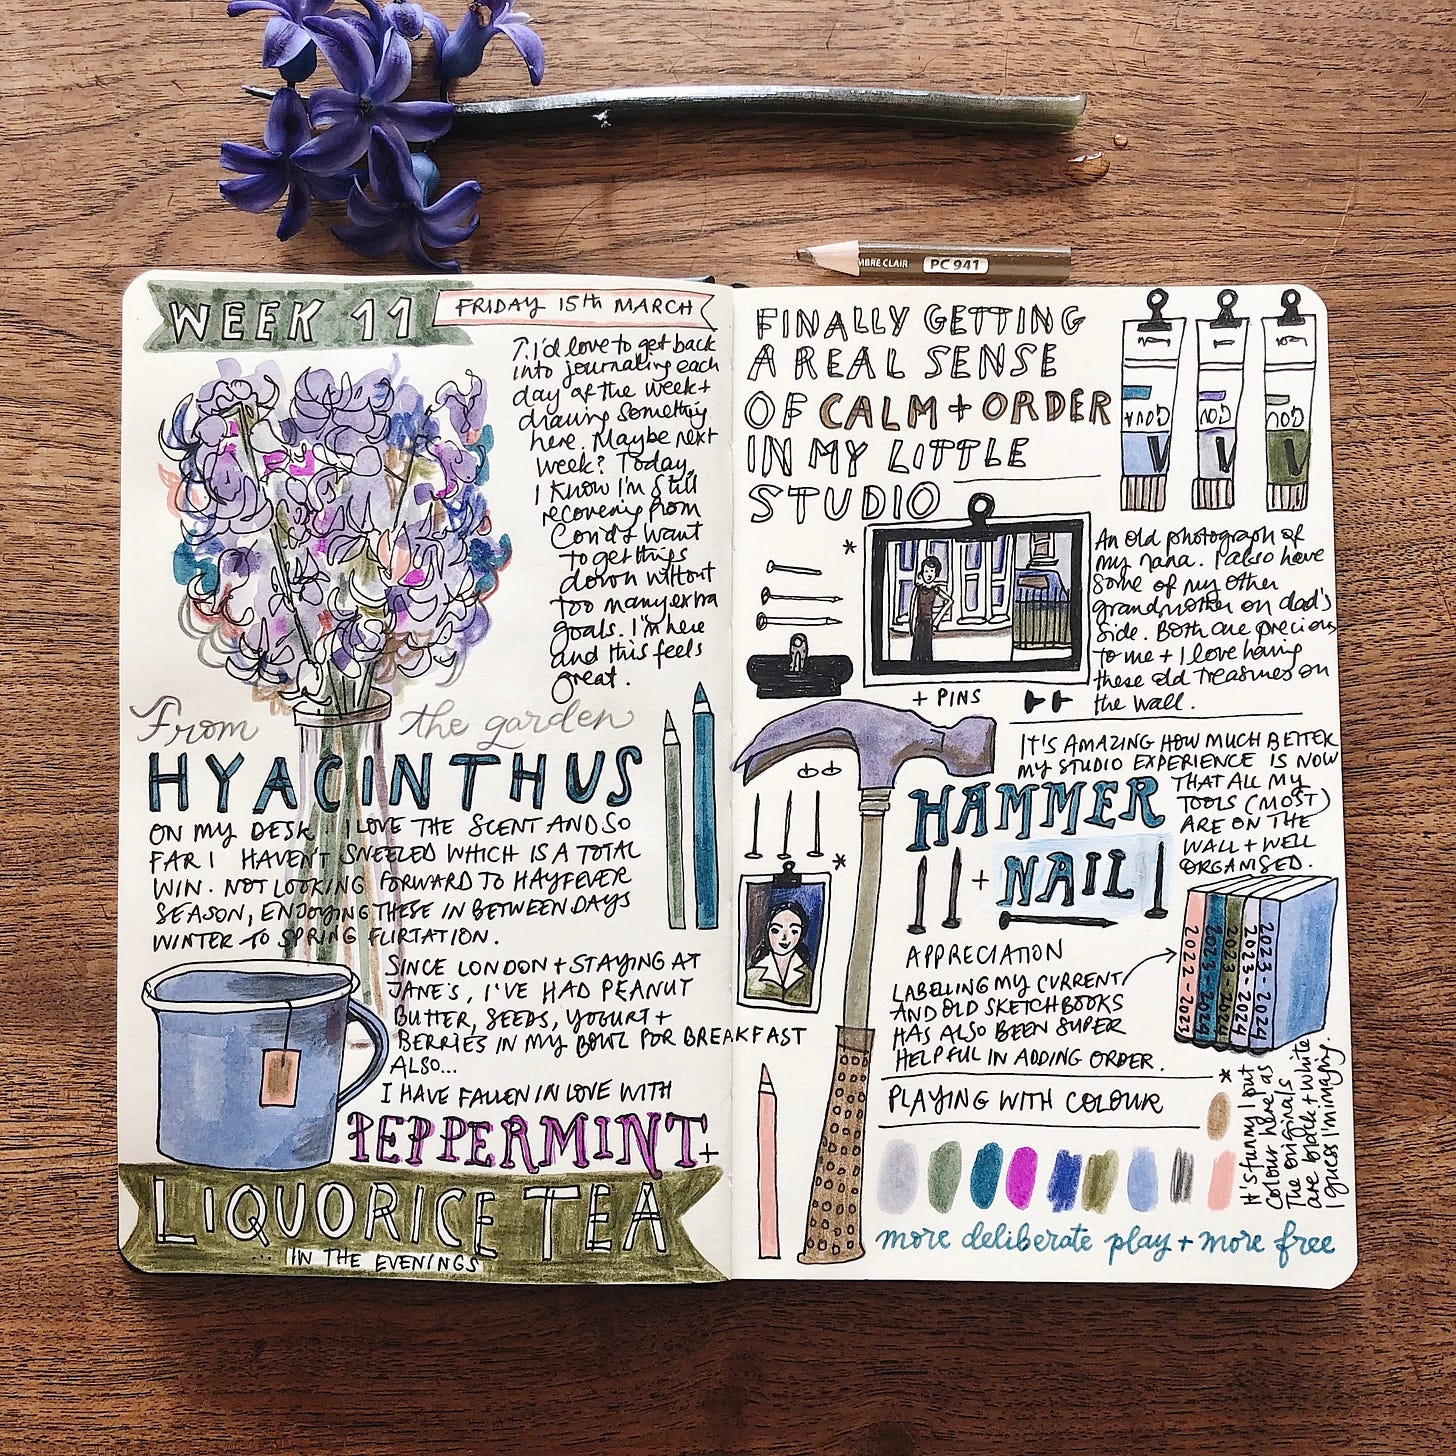 MBRE CLAIR PC 941
WEEK 11
FRIDAY 15th MARCH
↑ I'd love to get back
into journaling each
day of the week +
drawing something
here. Maybe next
week? Today,
I know I'm still
recovering from
Covid & want
to get things
down without
too many extra
goals. I'm here
and this feels
great.
From the garden
HYACINTHUS
ON MY DESK. I LOVE THE SCENT AND SO
FAR I HAVEN'T SNEEZED WHICH IS A TOTAL
WIN. NOT LOOKING FORWARD TO HAYFEVER
SEASON, ENJOYING THESE IN BETWEEN DAYS
WINTER TO SPRING FLIRTATION.
SINCE LONDON + STAYING AT
JANE'S, I'VE HAD PEANUT
BUTTER, SEEDS, YOGURT +
BERRIES IN MY BOWL FOR BREAKFAST
ALSO...
I HAVE FALLEN IN LOVE WITH
PEPPERMINT +
LIQUORICE TEA
... IN THE EVENINGS
FINALLY GETTING
A REAL SENSE
OF CALM + ORDER
IN MY LITTLE
STUDIO
GOUA
GOU
GOU
*
An old photograph of
my nana. I also have
some of my other
grandmother on dad's
side. Both are precious
to me + I love having
these old treasures on
the wall.
+ PINS
IT'S AMAZING HOW MUCH BETTER
MY STUDIO EXPERIENCE IS NOW
THAT ALL MY
TOOLS (MOST)
ARE ON THE
WALL + WELL
ORGANISED.
HAMMER
+ NAIL
*
APPRECIATION
LABELLING MY CURRENT
AND OLD SKETCHBOOKS
HAS ALSO BEEN SUPER
HELPFUL IN ADDING ORDER.
2022-2023
2023-2024
2023-2024
2023-2024
2023-2024
PLAYING WITH COLOUR
*
It's funny I put
colour here as
The originals
are black + white
I guess I'm imagining.
more deliberate play + more free